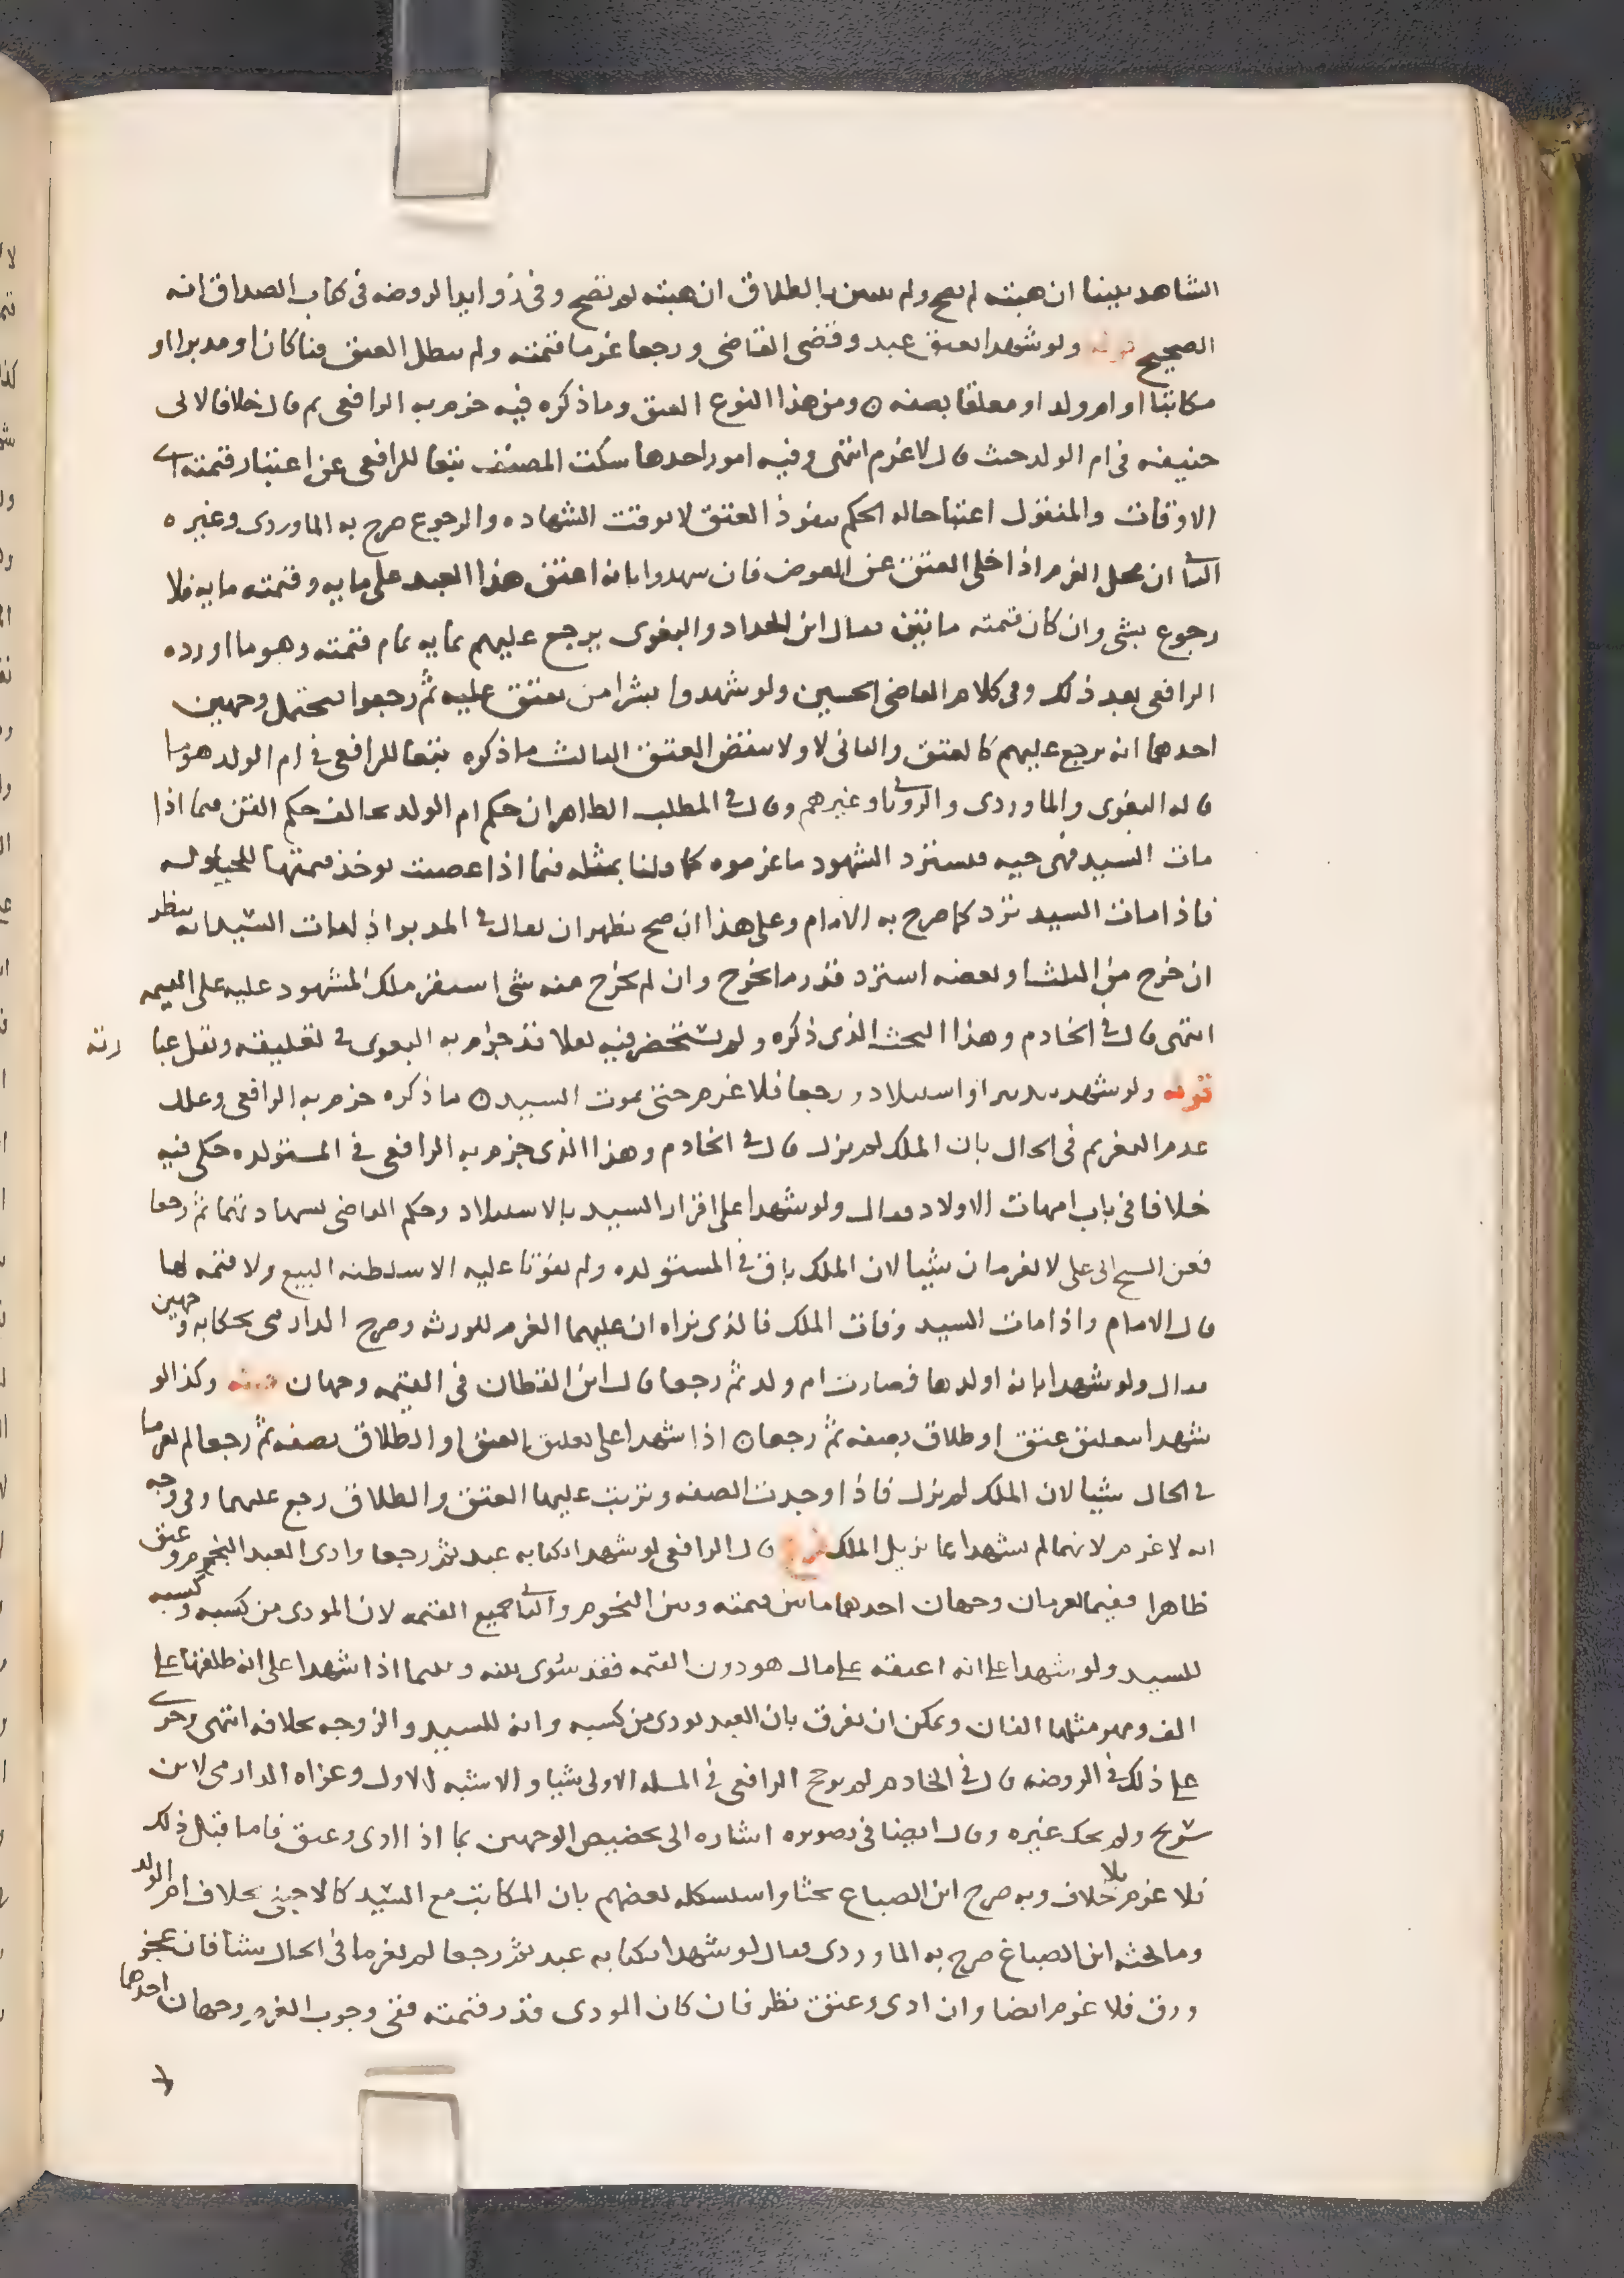 الشاهد يبينا ان هبته لم تصح ولم يتبين بالطلاق ان هبته لم تصح وفي زوايد الروضه في كتاب الصداق انه
الصحيح قوله ولو شهدا بعتق عبد وقضى القاضي ورجعا غرما قيمته ولم يبطل العتق قنا كان او مدبرا او
مكاتبا او ام ولد او معلقا بصفه ومن هذا النوع العتق وما ذكره فيه جزم به الرافعي ثم قال خلافا لابي
حنيفه في ام الولد حيث قال لا غرم انتهى وفيه امور احدها سكت المصنف تبعا للرافعي عن اعتبار قيمته اي
الاوقات والمنقول اعتبا حاله الحكم بنفوذ العتق لا بوقت الشهاده والرجوع صرح به الماوردي وغيره
الثاني ان محل الغرم اذا خلى العتق عن العوض فان شهدوا بانه اعتق هذا العبد على مايه وقيمته مايه فلا
رجوع بشي وان كان قيمته مائتين فقال ابن الحداد والبغوي يرجع عليهم بمايه تمام قيمته وهو ما اورده
الرافعي بعد ذلك وفي كلام القاضي الحسين ولو شهدوا بشرا من يعتق عليه ثم رجعوا يحتمل وجهين
احدهما انه يرجع عليهم كالعتق والثاني لا ولا ينتقض العتق الثالث ما ذكره تبعا للرافعي في ام الولد هو ما
قاله البغوي والماوردي والروياني وغيرهم وقال في المطلب الظاهر ان حكم ام الولد يخالف حكم القن فيما اذا
مات السيد فهي حيه فيسترد الشهود ما غرموه كما قلنا بمثله فيما اذا غصبت يوخذ قيمتها للحيلوله
فاذا مات السيد ترد كما صرح به الامام وعلى هذا ان صح يظهر ان يقال في المدبر اذا مات السيد انه ينظر
ان خرج من الثلث او بعضه استرد قدر ما يخرج وان لم يخرج منه شي استقر ملك المشهود عليه على القيمه
انتهى قال في الخادم وهذا البحث الذي ذكره ولم يستحضر فيه نقلا قد جزم به البغوي في تعليقه ونقل عبا رته
قوله ولو شهد بتدبير او استيلاد ورجعا فلا غرم حتى يموت السيد ما ذكره جزم به الرافعي وعلل
عدم التغريم في الحال بان الملك لم يزل قال في الخادم وهذا الذي جزم به الرافعي في المستولده حكى فيه
خلافا في باب امهات الاولاد فقال ولو شهدا على اقرار السيد بالاستيلاد وحكم القاضي بشهادتهما ثم رجعا
فعن الشيخ ابي علي لا يغرمان شيا لان الملك باق في المستولده ولم يفوتا عليه الا سلطنه البيع ولا قيمه لها
قال الامام واذا مات السيد وفات الملك فالذي نراه ان عليهما الغرم للورثه وصرح الدارمي بحكايه وجهين
فقال ولو شهدا بانه اولدها فصارت ام ولد ثم رجعا قال ابن القطان في القيمه وجهان قوله وكذا لو
شهدا بتعليق عتق او طلاق بصفه ثم رجعا اذا شهدا على تعليق العتق او الطلاق بصفه ثم رجعا لم يغرما
في الحال شيا لان الملك لم يزل فاذا وجدت الصفه وترتب عليها العتق والطلاق رجع عليهما وفي وجه
انه لا غرم لانهما لم يشهدا بما يزيل الملك فرع قال الرافعي لو شهدا بكتابه عبد ثم رجعا وادى العبد النجوم وعتق
ظاهرا ففيما يغرمان وجهان احدهما ما بين قيمته وبين النجوم والثاني جميع القيمه لان المودى من كسبه وكسبه
للسيد ولو شهدا على انه اعتقه على مال هو دون القيمه فقد سوى بينه وبينما اذا شهدا على انه طلقها على
الف ومهر مثلها الفان ويمكن ان يفرق بان العبد يودي من كسبه وانه للسيد والزوجه بخلافه انتهى وجرى
على ذلك في الروضه قال في الخادم لم يرجح الرافعي في المسله الاولى شيا والاشبه الاول وعزاه الدارمي لابن
سريج ولم يحك غيره وقال ايضا في تصويره اشاره الى تخصيص الوجهين بما اذا ادى وعتق فاما قبل ذلك
فلا غرم بلا خلاف وبه صرح ابن الصباغ بحثا واستشكله بعضهم بان المكاتب مع السيد كالاجنبي بخلاف ام الولد
وما بحثه ابن الصباغ صرح به الماوردي فقال لو شهدا بكتابه عبد ثم رجعا لم يغرما في الحال شيا فان عجز
ورق فلا غرم ايضا وان ادى وعتق نظر فان كان المودى قدر قيمته ففي وجوب الغرم وجهان احدهما